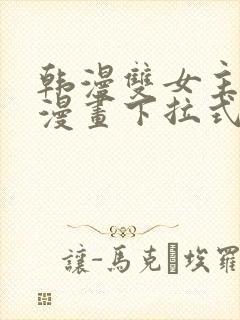 韩漫雙女主
漫畫下拉式
讓-馬克·埃羅